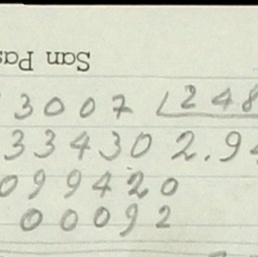 San Pas
3007 248
33430 2.94
099420
00092